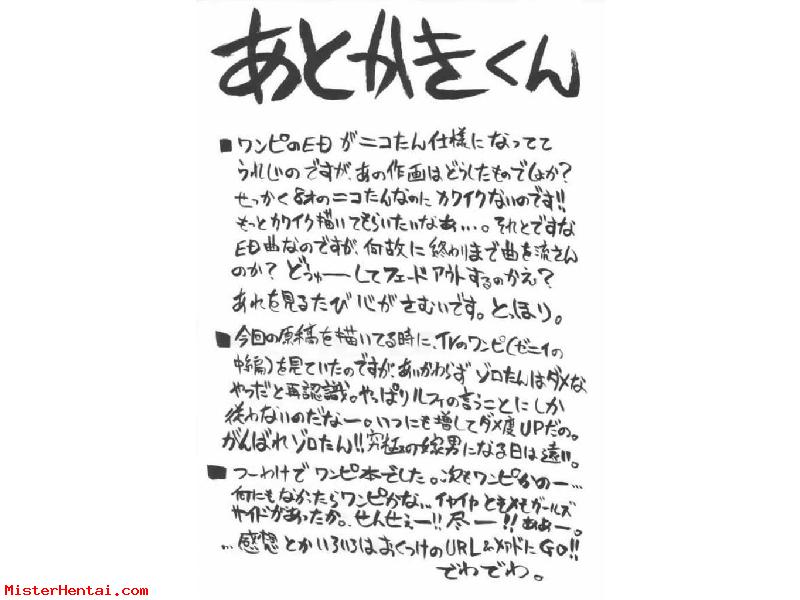 あとがきくん
■ワンピのEDがニコたん仕様になってて
うれしいのですが、あの作画はどうしたものでしょか?
せっかく8才のニコたんなのにカワイクないのです!!
もっとカワイク描いてもらいたいなぁ…。それとですな
ED曲なのですが、何故に終わりまで曲を流さん
のか? どぅゅーしてフェードアウトするのかえ?
あれを見るたび心がさむいです。と、ほり。
■今回の原稿を描いてる時に、TVのワンピ(ゼニィの
中編)を見ていたのですが、あいかわらずゾロたんはダメな
やつだと再認識。やっぱりルフィの言うことにしか
従わないのだなー。いつにも増してダメ度UPだの。
がんばれゾロたん!!究極の嫁男になる日は遠い!!。
■つーわけでワンピ本でした。次もワンピかのー…
何にもなかたらワンピかな… イヤイヤときメモガールズ
サイドがあったか。せんせぇー!!尽ー!!ああー。
…感想とかいろいろはおくつけのURL&メアドにGO!!
でわでわ。
MisterHentai.com